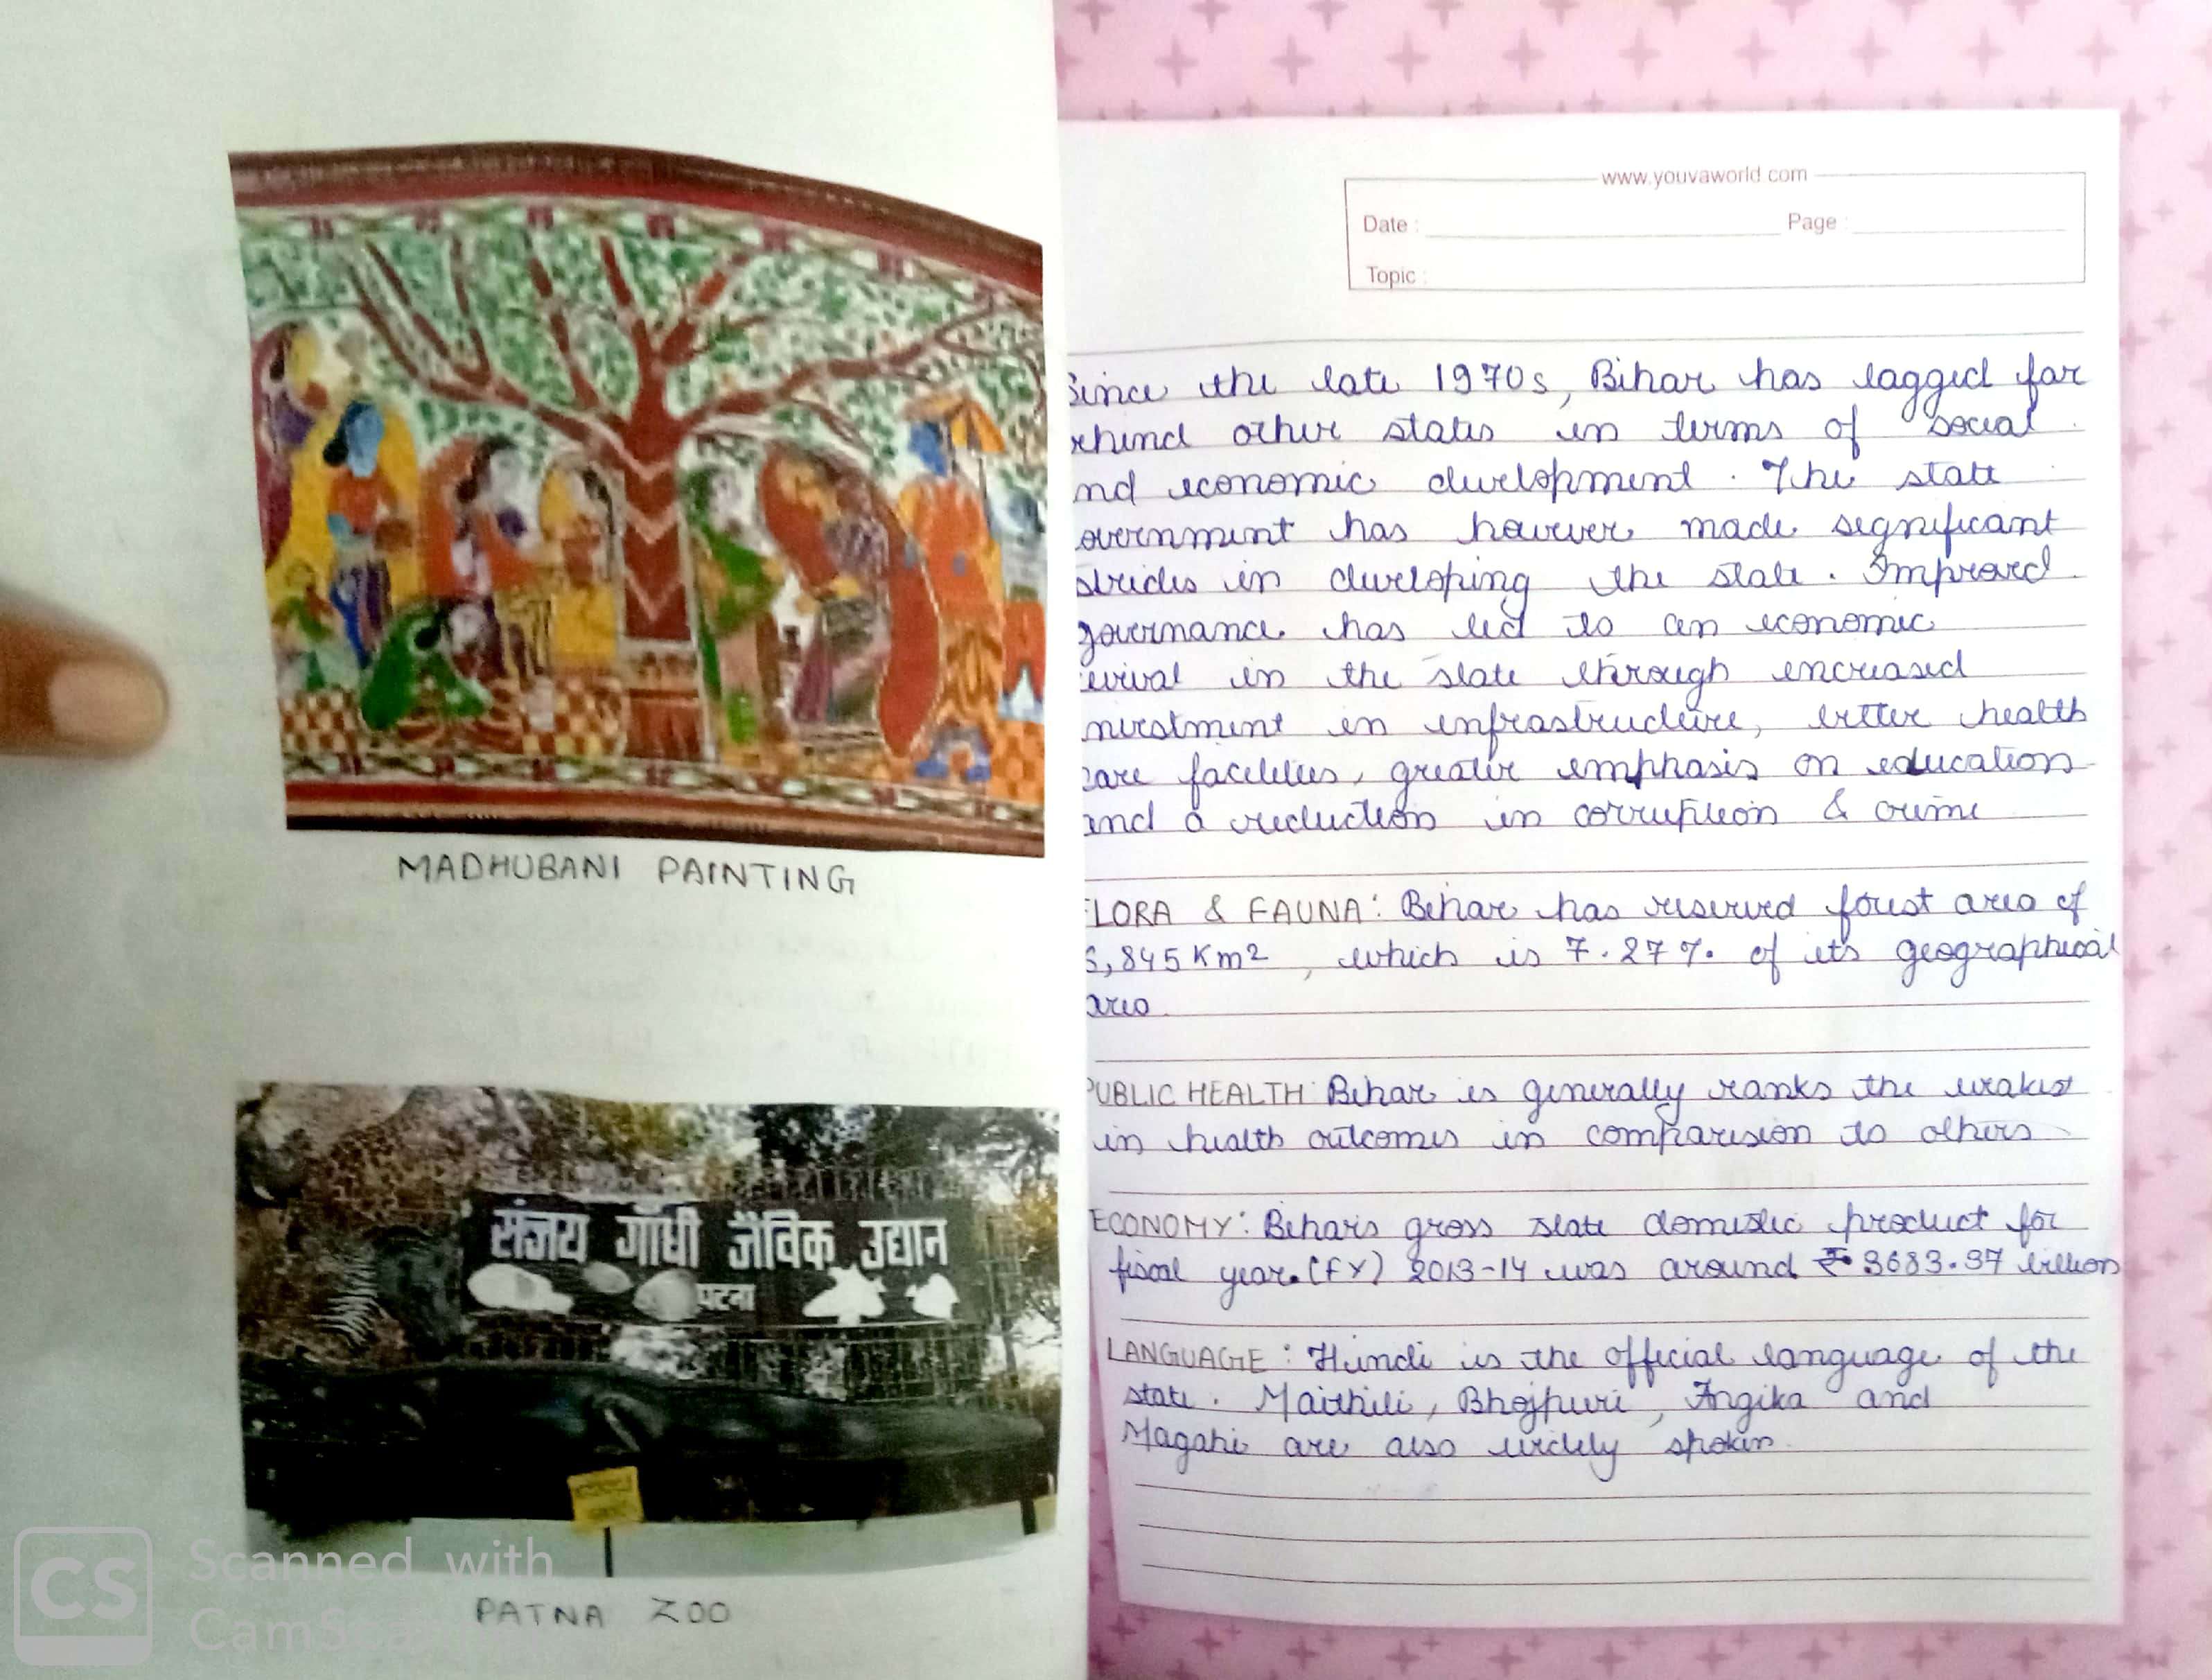 MADHUBANI PAINTING
संजय गाँधी जैविक उद्यान
पटना
PATNA ZOO
CS Scanned with
CamSca
www.youvaworld.com
Date : Page :
Topic :
Since the late 1970s, Bihar has lagged far
ehind other states in terms of social
nd economic development. The state
overnment has however made significant
strides in developing the state. Improved
governance has led to an economic
evival in the state through increased
nvestment in infrastructure, better health
care facilities, greater emphasis on education
and a reduction in corruption & crime
FLORA & FAUNA: Bihar has reserved forest area of
6,845 Km2, which is 7.27% of its geographical
area
PUBLIC HEALTH: Bihar is generally ranks the weakest
in health outcomes in comparision to others
ECONOMY: Bihar's gross state domestic product for
fiscal year (FY) 2013-14 was around ₹ 3683.37 billion
LANGUAGE: Hindi is the official language of the
state. Maithili, Bhojpuri, Angika and
Magahi are also widely spoken